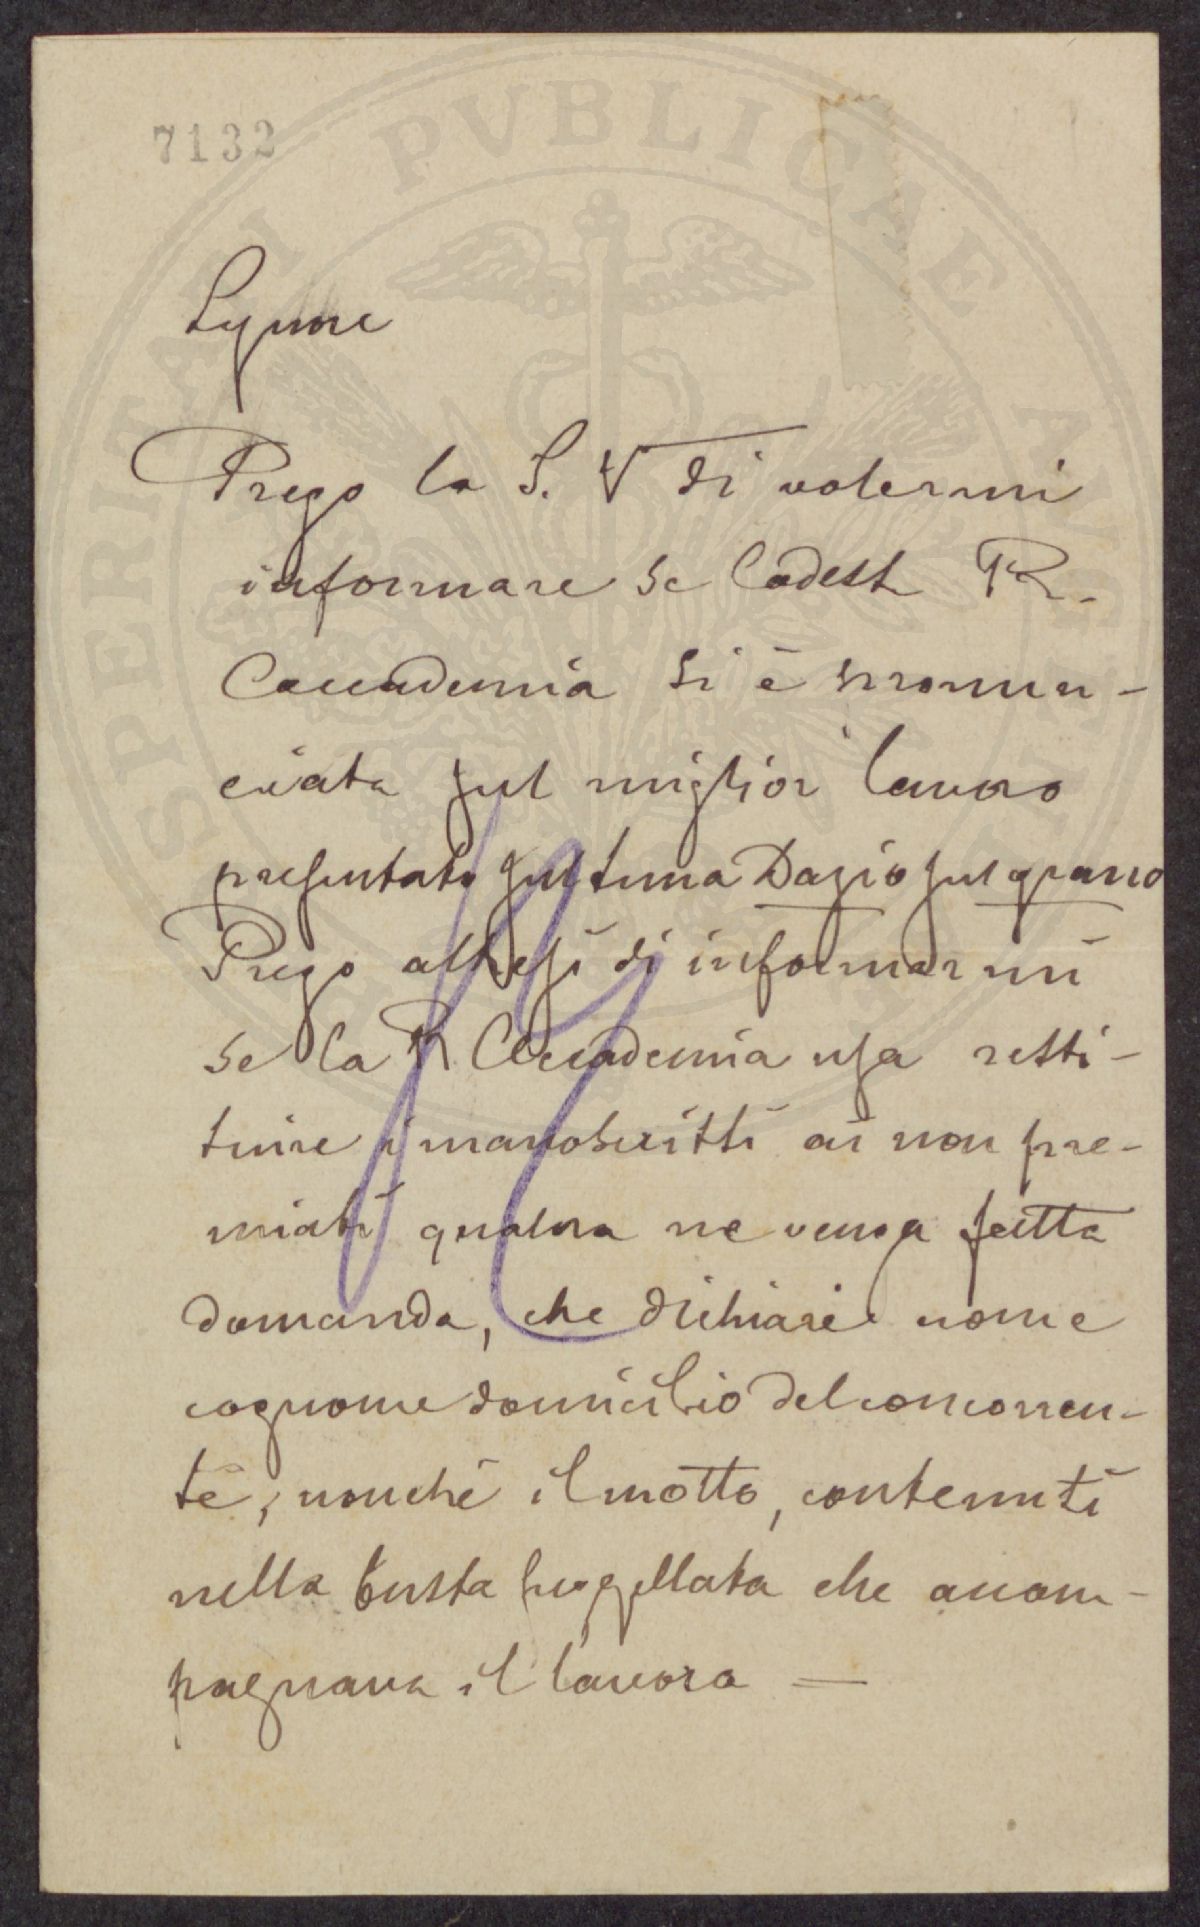 7132
PROSPERITATI PVBLICAE AVGENDAE
Sigmore
Prego la S. V di volermi
informare se Codesta R.
Accademia si è pronun-
ciata sul miglior lavoro
presentato sul tema Dazio sul grano
Prego altresì di informarmi
se la R. Accademia usa resti-
tuire i manoscritti ai non pre-
miati qualora ne venga fatta
domanda, che dichiari nome
cognome domicilio del concorren-
te, nonché il motto, contenuti
nella busta suggellata che accom-
pagnava il lavoro —